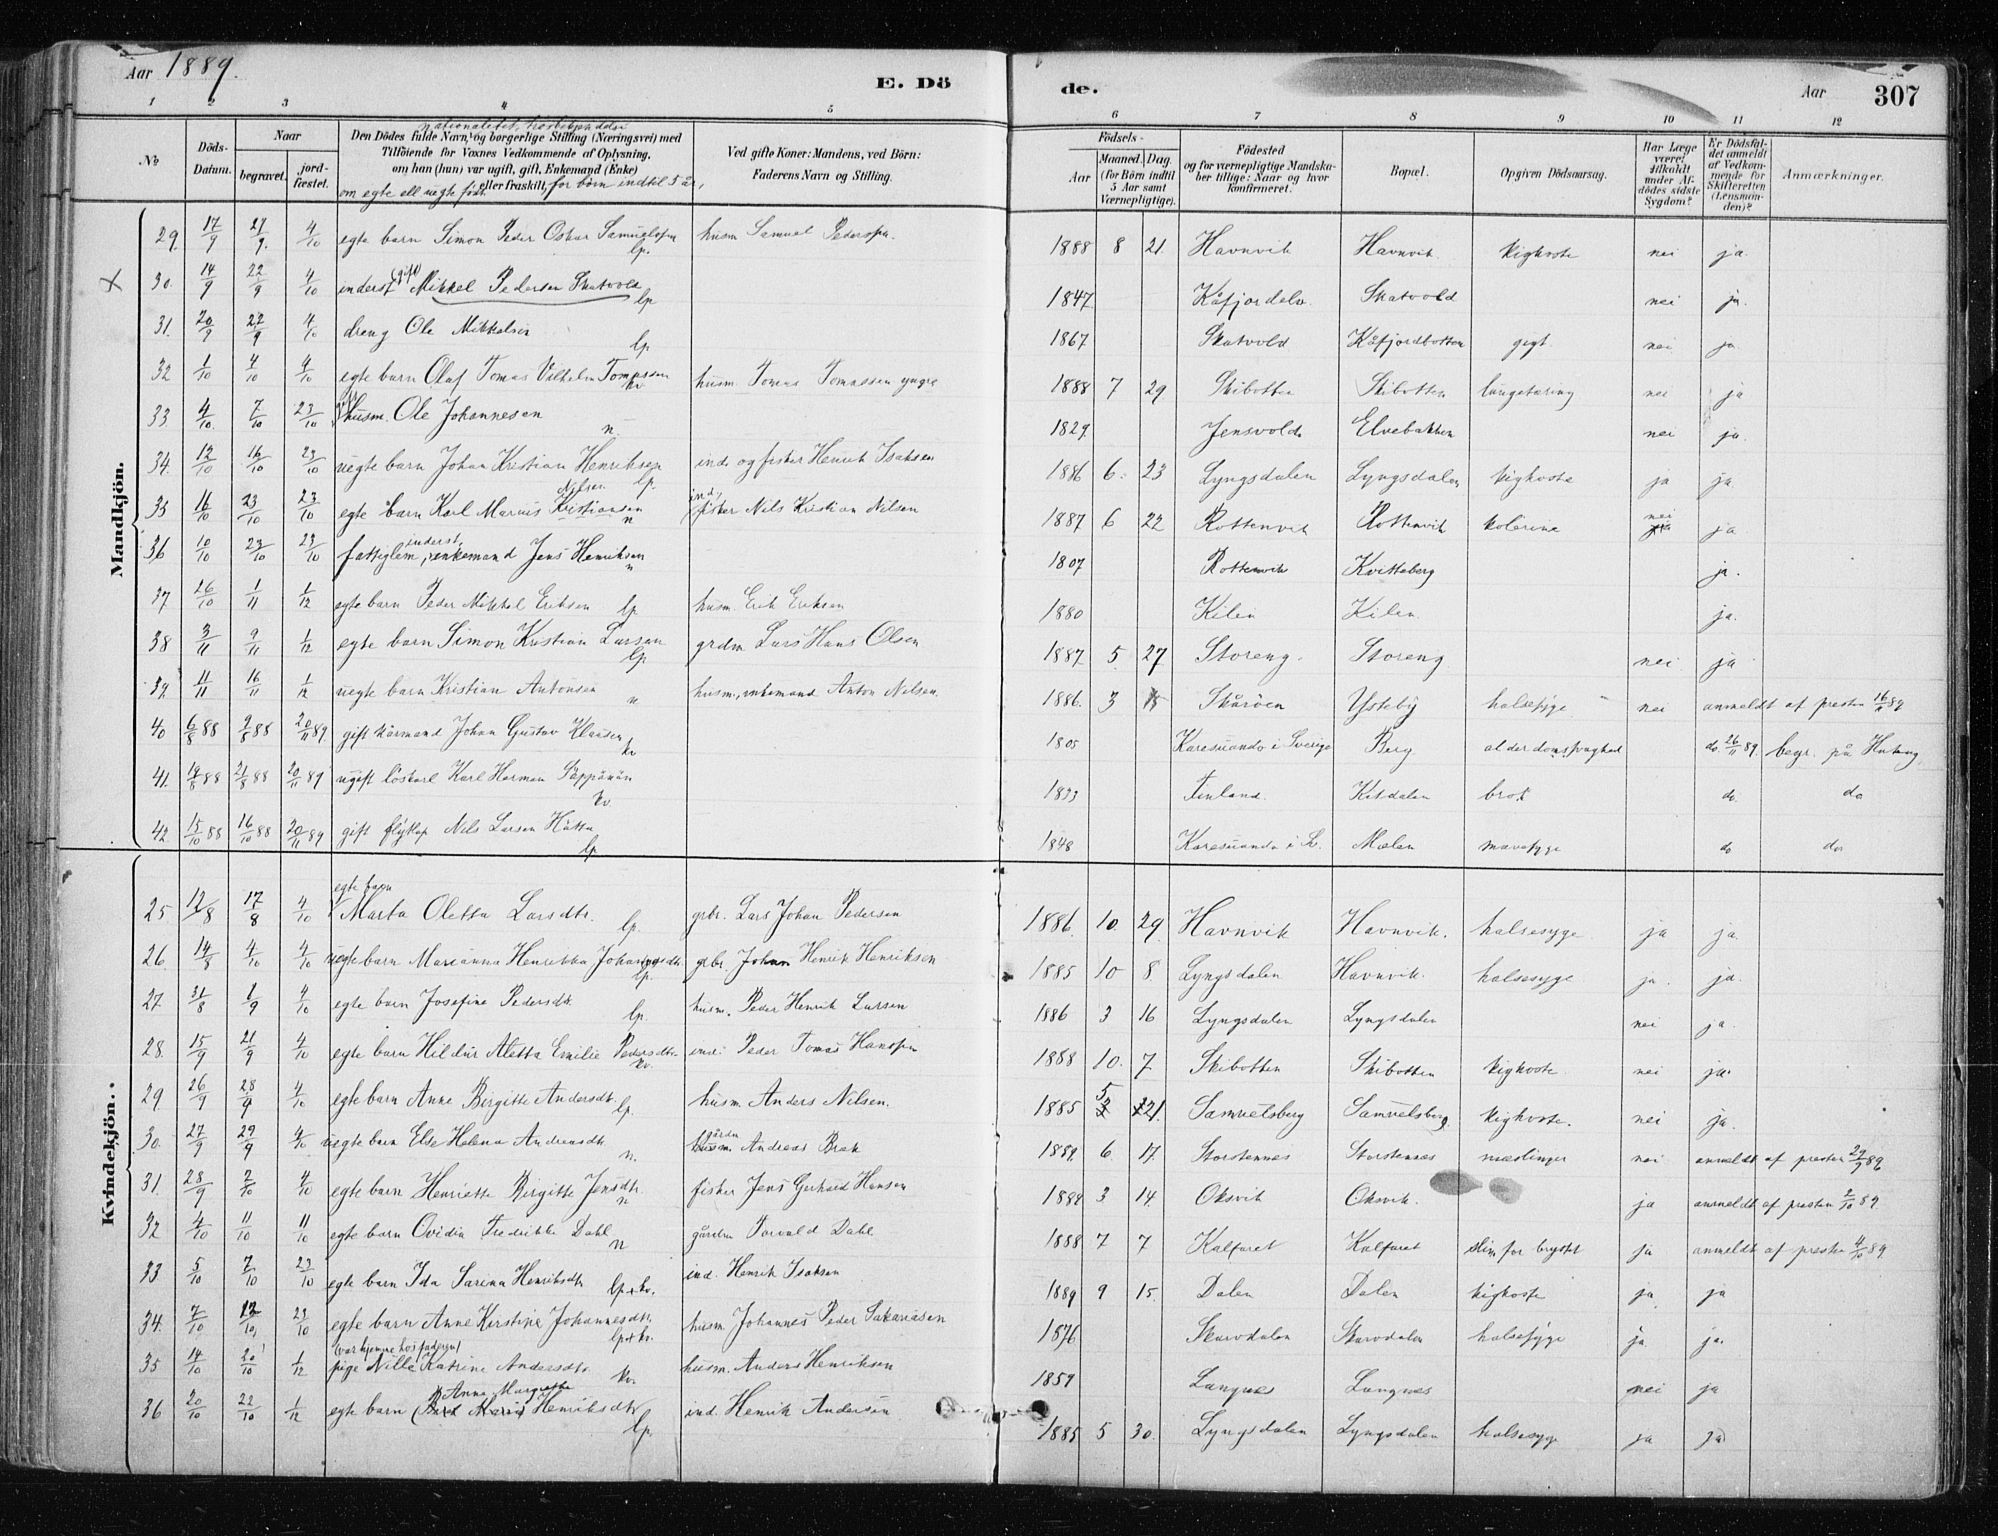 Aar 1889.
E. Döde.
Aar 307
1 2 3 4 5 6 7 8 9 10 11 12
No
Döds-Datum.
Naar begravet. jordfæstet.
nationalitet,
Den Dödes fulde Navn, og borgerlige Stilling (Næringsvei) med Tilföiende for Voxnes Vedkommende af Oplysning, om han (hun) var ugift, gift, Enkemand (Enke) eller fraskilt, for börn indtil 5 år, om egte ell. uegte född.
Ved gifte Koner: Mandens, ved Börn: Faderens Navn og Stilling.
Födsels- Aar Maaned. Dag. (for Börn indtil 5 Aar samt Værnepligtige).
Födested og for værnepligtige Mandskaber tillige: Naar og hvor konfirmeret.
Bopæl.
Opgiven Dödsaarsag.
Har Læge været tilkaldt under Afdödes sidste Sygdom?
Er Dödsfaldet anmeldt af Vedkommende for Skifteretten (Lensmanden)?
Anmærkninger.
Mandkjön.
29. 17/9 21/9. 4/10 egte barn Simon Peder Oskar Samuelsen lp. husm. Samuel Pedersen. 1888 8 21. Havnvik Havnvik kighoste nei ja.
30. 14/9 22/9 4/10 inderst (gift) Mikkel Pedersen Skatvold lp 1847. Kåfjordelv. Skatvold nei ja.
31. 20/9 22/9 4/10 dreng Ole Mikkelsen lp 1867 Skatvold Kåfjordbotten gigt nei ja
32 1/10 4/10 4/10 egte barn Olaf Tomas Vilhelm Tomassen kv husm. Tomas Tomassen yngre 1888 7 29 Skibotten Skibotten lungetæring nei ja
33 4/10. 7/10 23/10 gift husm. Ole Johannesen n. 1829. Jensvold Elvebakken nei ja.
34. 12/10 16/10 23/10 uegte barn Johan Kristian Henriksen lp. ind. og fisker Henrik Isaksen 1886 6. 23 Lyngsdalen Lyngsdalen kighoste ja ja
35 16/10 23/10 23/10 egte barn Karl Marius Kristiansen Nilsen n ind. fisker Nils Kristian Nilsen 1887 6 22 Rottenvik Rottenvik kolerine nei ja
36 10/10 23/10 23/10 fattiglem, inderst, enkemand Jens Henriksen n 1807 Rottenvik Kvitteberg ja.
37 26/10 1/11 1/12 egte barn Peder Mikkel Eriksen lp. husm. Erik Eriksen 1880 Kilen Kilen. ja.
38 3/11 9/11 1/12 egte barn Simon Kristian Larsen lp grdm. Lars Hans Olsen 1887 5 27 Storeng. Storeng nei ja
39. 11/11 16/11 1/12 uegte barn Kristian Antonsen n husm., enkemand Anton Nilsen. 1886. 3 Skåröen Ysteby halsesyge nei anmeldt af presten 16/11 89
40 6/8 88 2/8 88 20/11 89. gift kårmand Johan Gustav Klausen kv 1805 Karesuando i Sverige Berg alderdomssvaghed do. 26/11 89. begr. på
41. 19/8 88 21/8 88 20/11 89 ugift löskarl Karl Herman Säppänän kv. 1833 Finland. Kitdalen brok do. do
42 15/10 88 16/10 88 20/11 89 gift flytlap Nils Larsen Hætta lp 1848 Karesuando i Sv. Mælen mavesyge do do
Kvindekjön.
25 12/8 17/8 4/10 egte barn Marta Oletta Larsdtr. lp. grbr. Lars Johan Pedersen 1886. 10. 29. Havnvik Havnvik. halsesyge ja ja
26 14/8 4/10 4/10 uegte barn Marianna Henrikka Johansdtr lp. grbr. Johan Henrik Henriksen 1885 10 8 Lyngsdalen Havnvik. halsesyge ja. ja.
27. 31/8 1/9 4/10 egte barn Josefine Pedersdtr lp. husm. Peder Henrik Larsen 1886 3 16 Lyngsdalen Lyngsdalen nei ja.
28. 15/9 21/9 4/10 egte barn Hildur Aletta Emilie Pedersdtr. kv. ind. Peder Tomas Hansen 1888 10. 7 Skibotten Skibotten kighoste. nei ja.
29 26/9 28/9 4/10 egte barn Anne Birgitte Andersdtr. lp. husm. Anders Nilsen. 1885 5 21. Samuelsberg Samuelsberg kighoste. nei ja.
30. 27/9 29/9 4/10 uegte barn Else Helena Andreasdtr. n. gårdm Andreas Bræk 1889. 6. 17 Storstennes Storstennes mæslinger nei anmeldt af presten 29/9 89
31. 28/9 2/10 4/10 egte barn Henriette Birgitte Jensdtr. n fisker Jens Gerhard Hansen 1889 3 14. Oksvik Oksvik. ja anmeldt af presten 2/10 89.
32 4/10 11/10 11/10 egte barn Ovidia Fredrikke Dahl n gårdm Torvald Dahl 1888 7 7 Kalfaret Kalfaret slim for brystet ja anmeldt af presten 4/10 89.
33 5/10 7/10 23/10 egte barn Ida Sarina Henriksdtr lp+kv. ind. Henrik Isaksen 1889 9 15. Dalen Dalen kighoste ja ja
34. 7/10 12/10 23/10 egte barn Anne Kirstine Johannesdtr. lp+kv. husm. Johannes Peder Sakariasen 1876 Skarvdalen Skarvdalen halsesyge ja ja.
35 14/10 20/10 1/12 (var hjemme hos faderen) pige Nille Katrine Andersdtr kv. husm. Anders Henriksen 1859 Langnes Langnes nei ja
36 20/10 22/10 1/12 egte barn Anna Margrethe Henriksdtr lp. ind. Henrik Andersen 1885 5 30. Lyngsdalen Lyngsdalen halsesyge ja ja